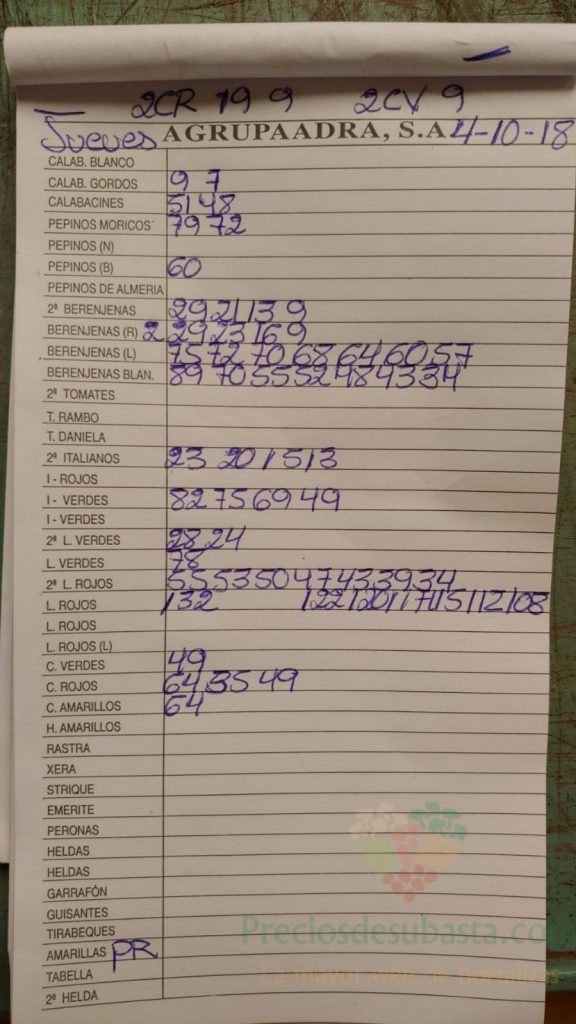 2CR 19 9 2CV 9
Jueves AGRUPAADRA, S.A 4-10-18
CALAB. BLANCO
CALAB. GORDOS 9 7
CALABACINES 51 48
PEPINOS MORICOS 79 72
PEPINOS (N)
PEPINOS (B) 60
PEPINOS DE ALMERIA
2ª BERENJENAS 29 21 13 9
BERENJENAS (R) 2 29 23 16 9
BERENJENAS (L) 75 72 70 68 64 60 57
BERENJENAS BLAN. 89 70 55 52 48 43 34
2ª TOMATES
T. RAMBO
T. DANIELA
2ª ITALIANOS 23 20 15 13
I - ROJOS
I - VERDES 82 75 69 49
I - VERDES
2ª L. VERDES 28 24
L. VERDES 78
2ª L. ROJOS 55 53 50 47 43 39 34
L. ROJOS 132 122 120 117 115 112 108
L. ROJOS
L. ROJOS (L)
C. VERDES 49
C. ROJOS 64 35 49
C. AMARILLOS 64
H. AMARILLOS
RASTRA
XERA
STRIQUE
EMERITE
PERONAS
HELDAS
HELDAS
GARRAFÓN
GUISANTES
TIRABEQUES
Preciosdesubasta.com
AMARILLAS PR
La mayor web de
TABELLA
2ª HELDA